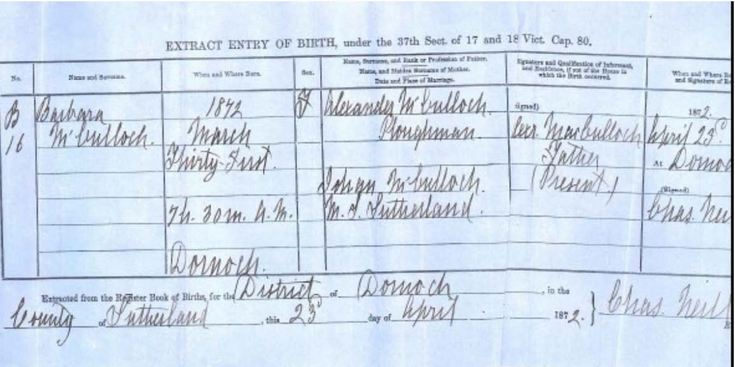 EXTRACT ENTRY OF BIRTH, under the 37th Sect. of 17 and 18 Vict. Cap. 80.
No.
Name and Surname.
When and Where Born.
Sex.
Name, Surname, and Rank or Profession of Father.
Name, and Maiden Surname of Mother.
Date and Place of Marriage.
Signature and Qualification of Informant,
and Residence, if out of the House in
which the Birth occurred.
When and Where
and Signature of
B
16
Barbara
McCulloch.
1872
March
Thirty-First.
7h. 30m. A.M.
Dornoch.
F
Alexander McCulloch.
Ploughman.
Johan McCulloch.
M.S. Sutherland.
(Signed)
Alexr. MacCulloch
Father
(Present)
1872.
April 23d
At Dornoc
(Signed)
Chas. Neil
Extracted from the Register Book of Births, for the District of Dornoch, in the
County of Sutherland, this 23d day of April 1872. } Chas. Neill